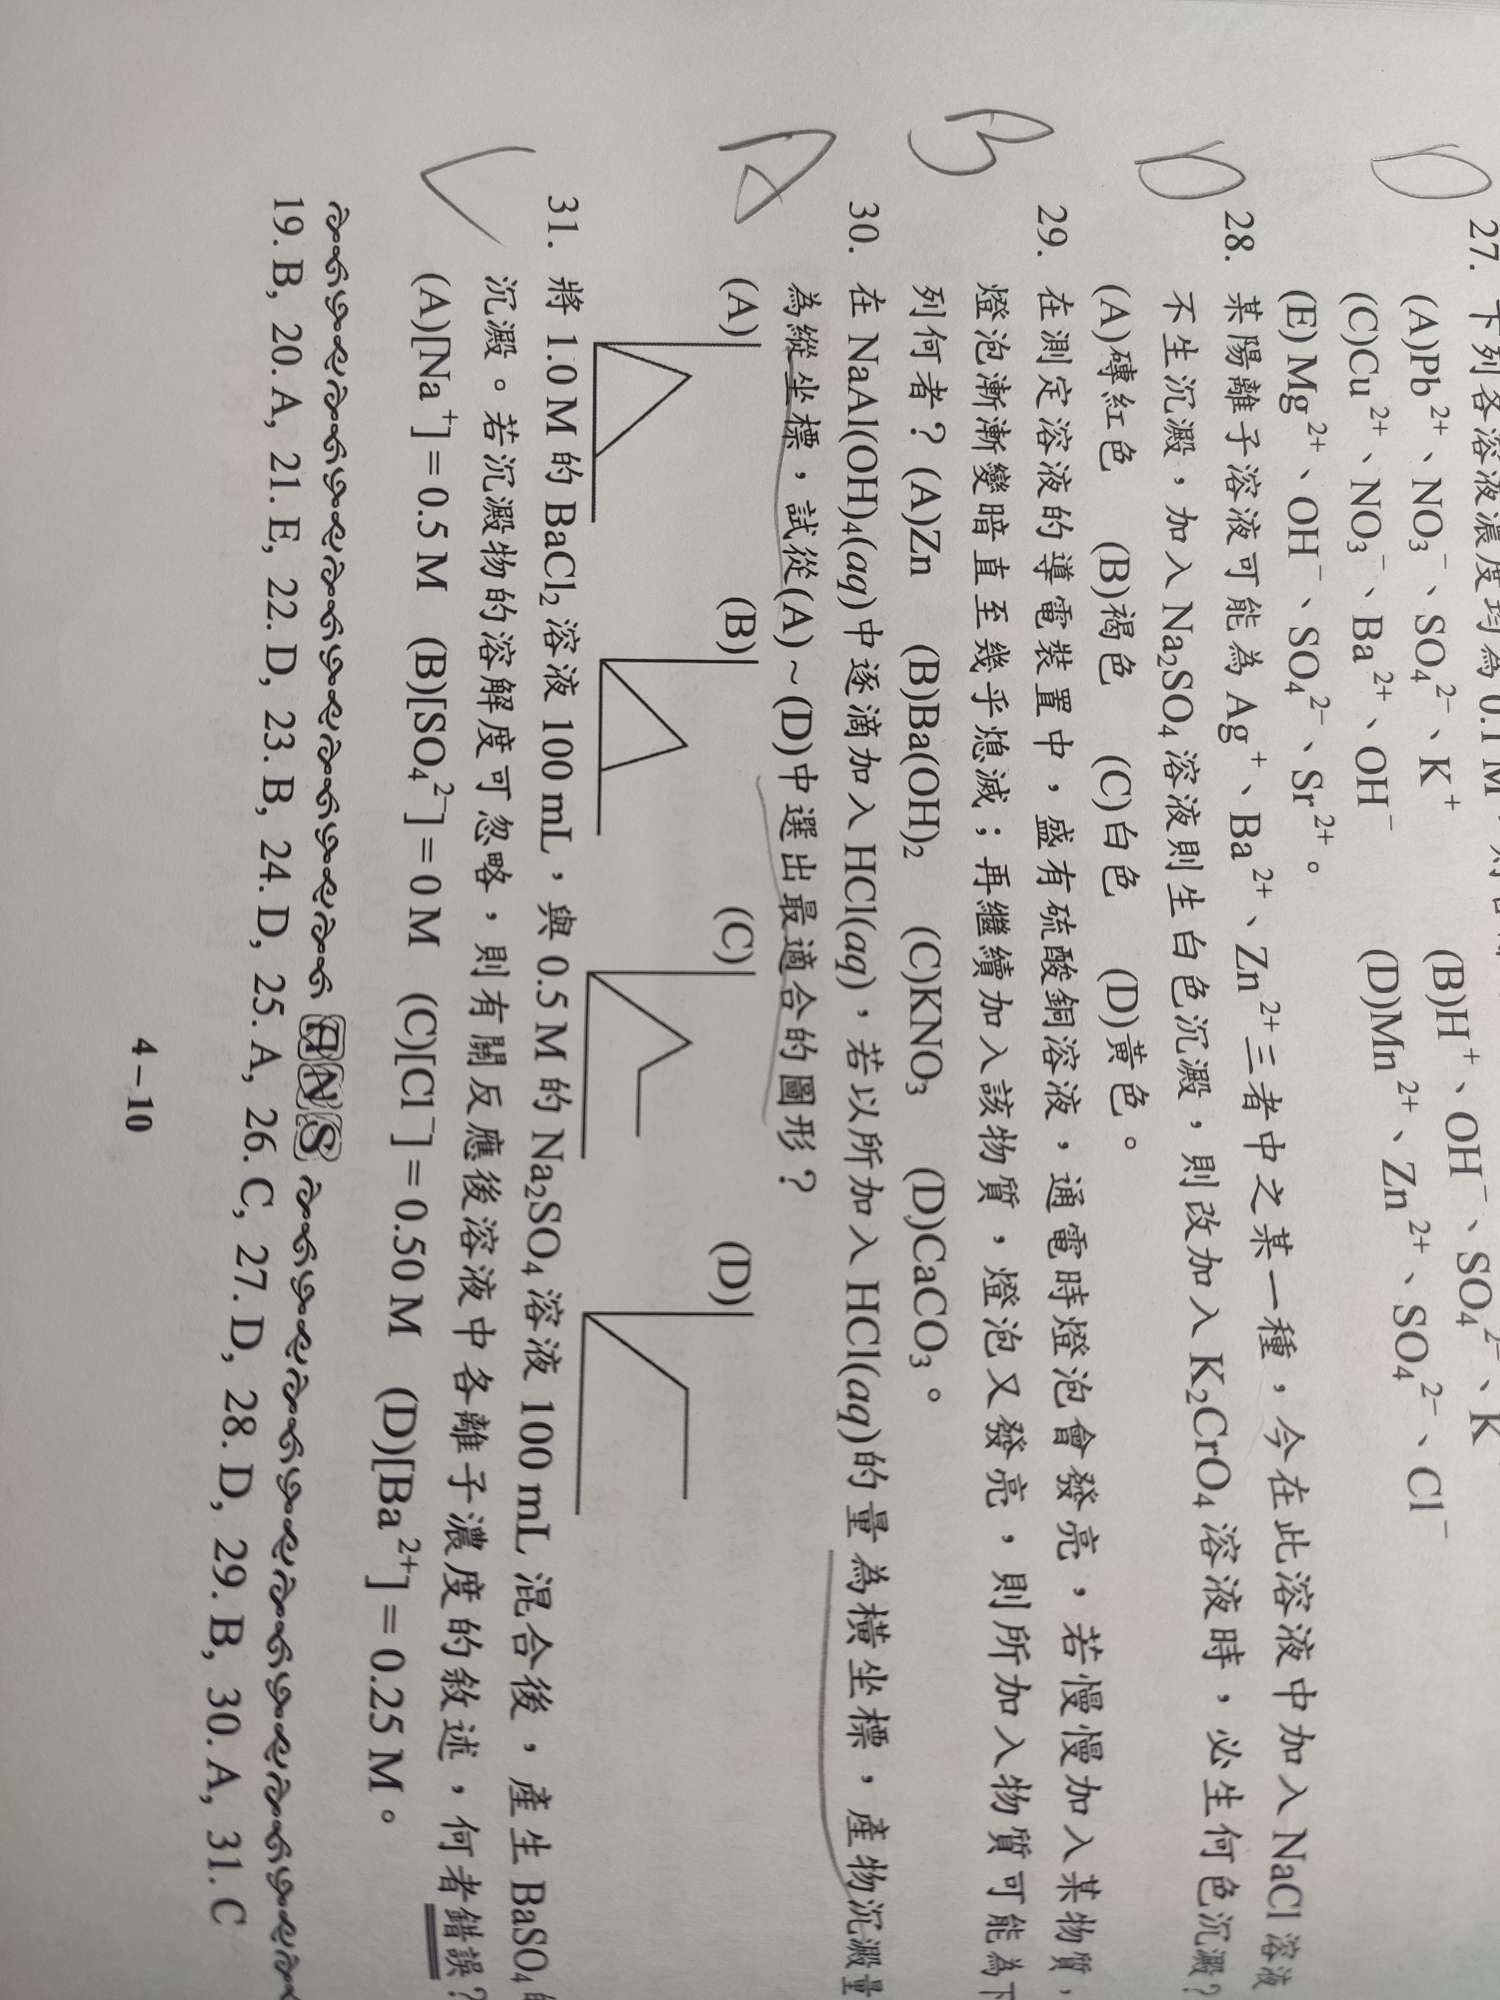 27. 下列各溶液濃度均為 0.1 M
(A)Pb²⁺、NO₃⁻、SO₄²⁻、K⁺ (B)H⁺、OH⁻、SO₄²⁻、K
(C)Cu²⁺、NO₃⁻、Ba²⁺、OH⁻ (D)Mn²⁺、Zn²⁺、SO₄²⁻、Cl⁻
(E) Mg²⁺、OH⁻、SO₄²⁻、Sr²⁺。
D
28. 某陽離子溶液可能為 Ag⁺、Ba²⁺、Zn²⁺三者中之某一種，今在此溶液中加入 NaCl 溶液
不生沉澱，加入 Na₂SO₄ 溶液則生白色沉澱，則改加入 K₂CrO₄ 溶液時，必生何色沉澱？
(A)磚紅色 (B)褐色 (C)白色 (D)黃色。
D
29. 在測定溶液的導電裝置中，盛有硫酸銅溶液，通電時燈泡會發亮，若慢慢加入某物質，
燈泡漸漸變暗直至幾乎熄滅；再繼續加入該物質，燈泡又發亮，則所加入物質可能為下
列何者？(A)Zn (B)Ba(OH)₂ (C)KNO₃ (D)CaCO₃。
B
30. 在 NaAl(OH)₄(aq)中逐滴加入 HCl(aq)，若以所加入 HCl(aq)的量為橫坐標，產物沉澱量
為縱坐標，試從(A)~(D)中選出最適合的圖形？
A
(A) (B) (C) (D)
31. 將 1.0 M 的 BaCl₂ 溶液 100 mL，與 0.5 M 的 Na₂SO₄ 溶液 100 mL 混合後，產生 BaSO₄
沉澱。若沉澱物的溶解度可忽略，則有關反應後溶液中各離子濃度的敘述，何者錯誤？
(A)[Na⁺] = 0.5 M (B)[SO₄²⁻] = 0 M (C)[Cl⁻] = 0.50 M (D)[Ba²⁺] = 0.25 M。
ANS
19. B, 20. A, 21. E, 22. D, 23. B, 24. D, 25. A, 26. C, 27. D, 28. D, 29. B, 30. A, 31. C
4－10